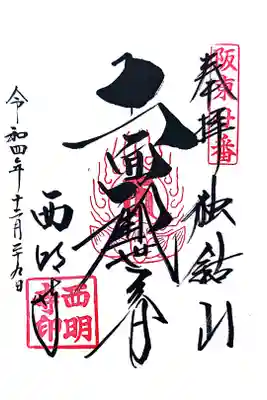 阪東廿番
奉拝 独鈷山
十一面観世音
西明寺
西明寺印
令和四年十二月二十九日